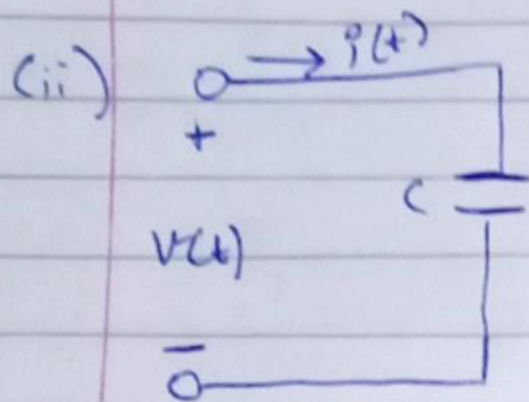 (ii)
i(t)
+
C
V(t)
-